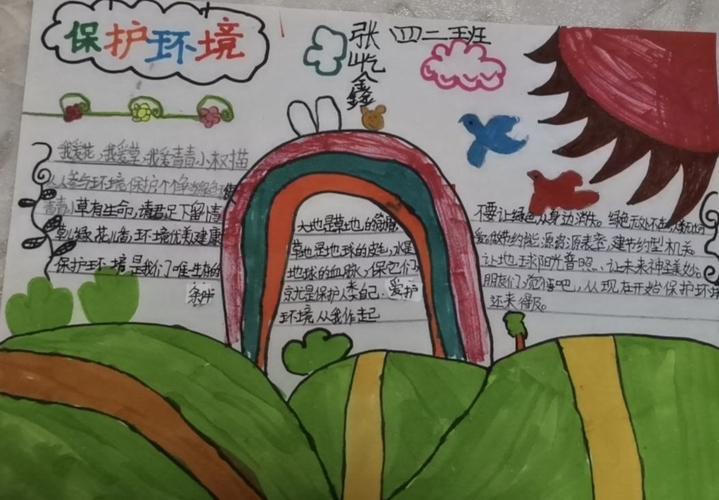 保护环境
张屹鑫
四二班
我爱花,我爱草,我爱青青小树苗
人人参与环境,保护个
青青小草有生命,请君足下留情
草儿绿花儿香,环境优美健康
保护环境是我们唯一生存的
余地
大地是草地的
草地是地球的皮肤,水是
地球的血脉,保它们
就是保护人类自己.爱护
环境从我作起
不要让绿色从身边消失。绿色无处不在
做节约能源
让地球阳光普照.让未来神话美妙
朋友们,觉悟吧,从现在开始保护环境
还来得及。